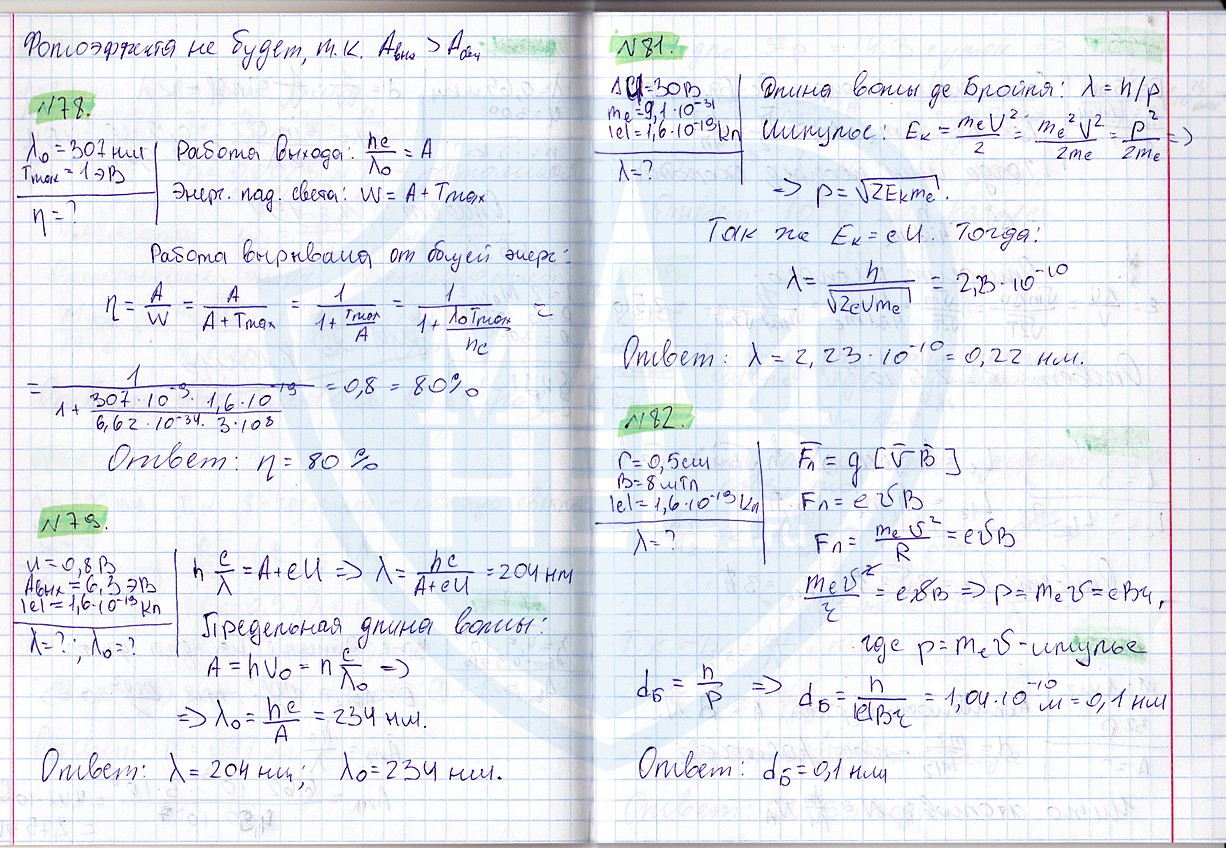 Фотоэффекта не будет, т.к. Aвых > Aвещ
№78.
λ₀ = 307 нм
Tmax = 1 эВ
η = ?
Работа выхода: hc/λ₀ = A
Энерг. пад. света: W = A + Tmax
Работа вырывания от общей энерг:
η = A/W = A/(A + Tmax) = 1/(1 + Tmax/A) = 1/(1 + λ₀Tmax/hc) =
= 1/(1 + (307·10⁻⁹·1,6·10⁻¹⁹)/(6,62·10⁻³⁴·3·10⁸)) = 0,8 = 80%
Ответ: η = 80 %
№79.
U = 0,8 В
Aвых = 6,3 эВ
|e| = 1,6·10⁻¹⁹ Кл
λ = ? ; λ₀ = ?
h c/λ = A + eU => λ = hc/(A + eU) = 204 нм
Предельная длина волны:
A = hν₀ = h c/λ₀ =>
=> λ₀ = hc/A = 234 нм.
Ответ: λ = 204 нм; λ₀ = 234 нм.
№81.
ΔU = 30 В
me = 9,1·10⁻³¹
|e| = 1,6·10⁻¹⁹ Кл
λ = ?
Длина волны де Бройля: λ = h/p
Импульс: Eк = meV²/2 = me²V²/2me = p²/2me =>
=> p = √(2Eкme).
Так же Eк = eU. Тогда:
λ = h/√(2eUme) = 2,23·10⁻¹⁰
Ответ: λ = 2,23·10⁻¹⁰ = 0,22 нм.
№82.
r = 0,5 см
B = 8 мТл
|e| = 1,6·10⁻¹⁹ Кл
λ = ?
F̄л = q [v̄ B̄]
Fл = evB
Fл = mev²/R = evB
mev²/r = evB => p = mev = eBr,
где p = mev - импульс
dБ = h/p => dБ = h/|e|Br = 1,04·10⁻¹⁰ м = 0,1 нм
Ответ: dБ = 0,1 нм